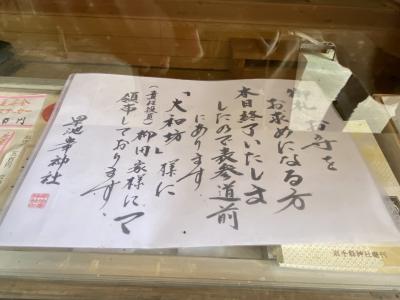 御札 お守を
お求めになる方
本日終了いたしま
したので表参道前
にあります
「大和坊」様に
(責任役員)柳田家様にて
頒布しております。
早池峯神社
岩手縣神社庁刊